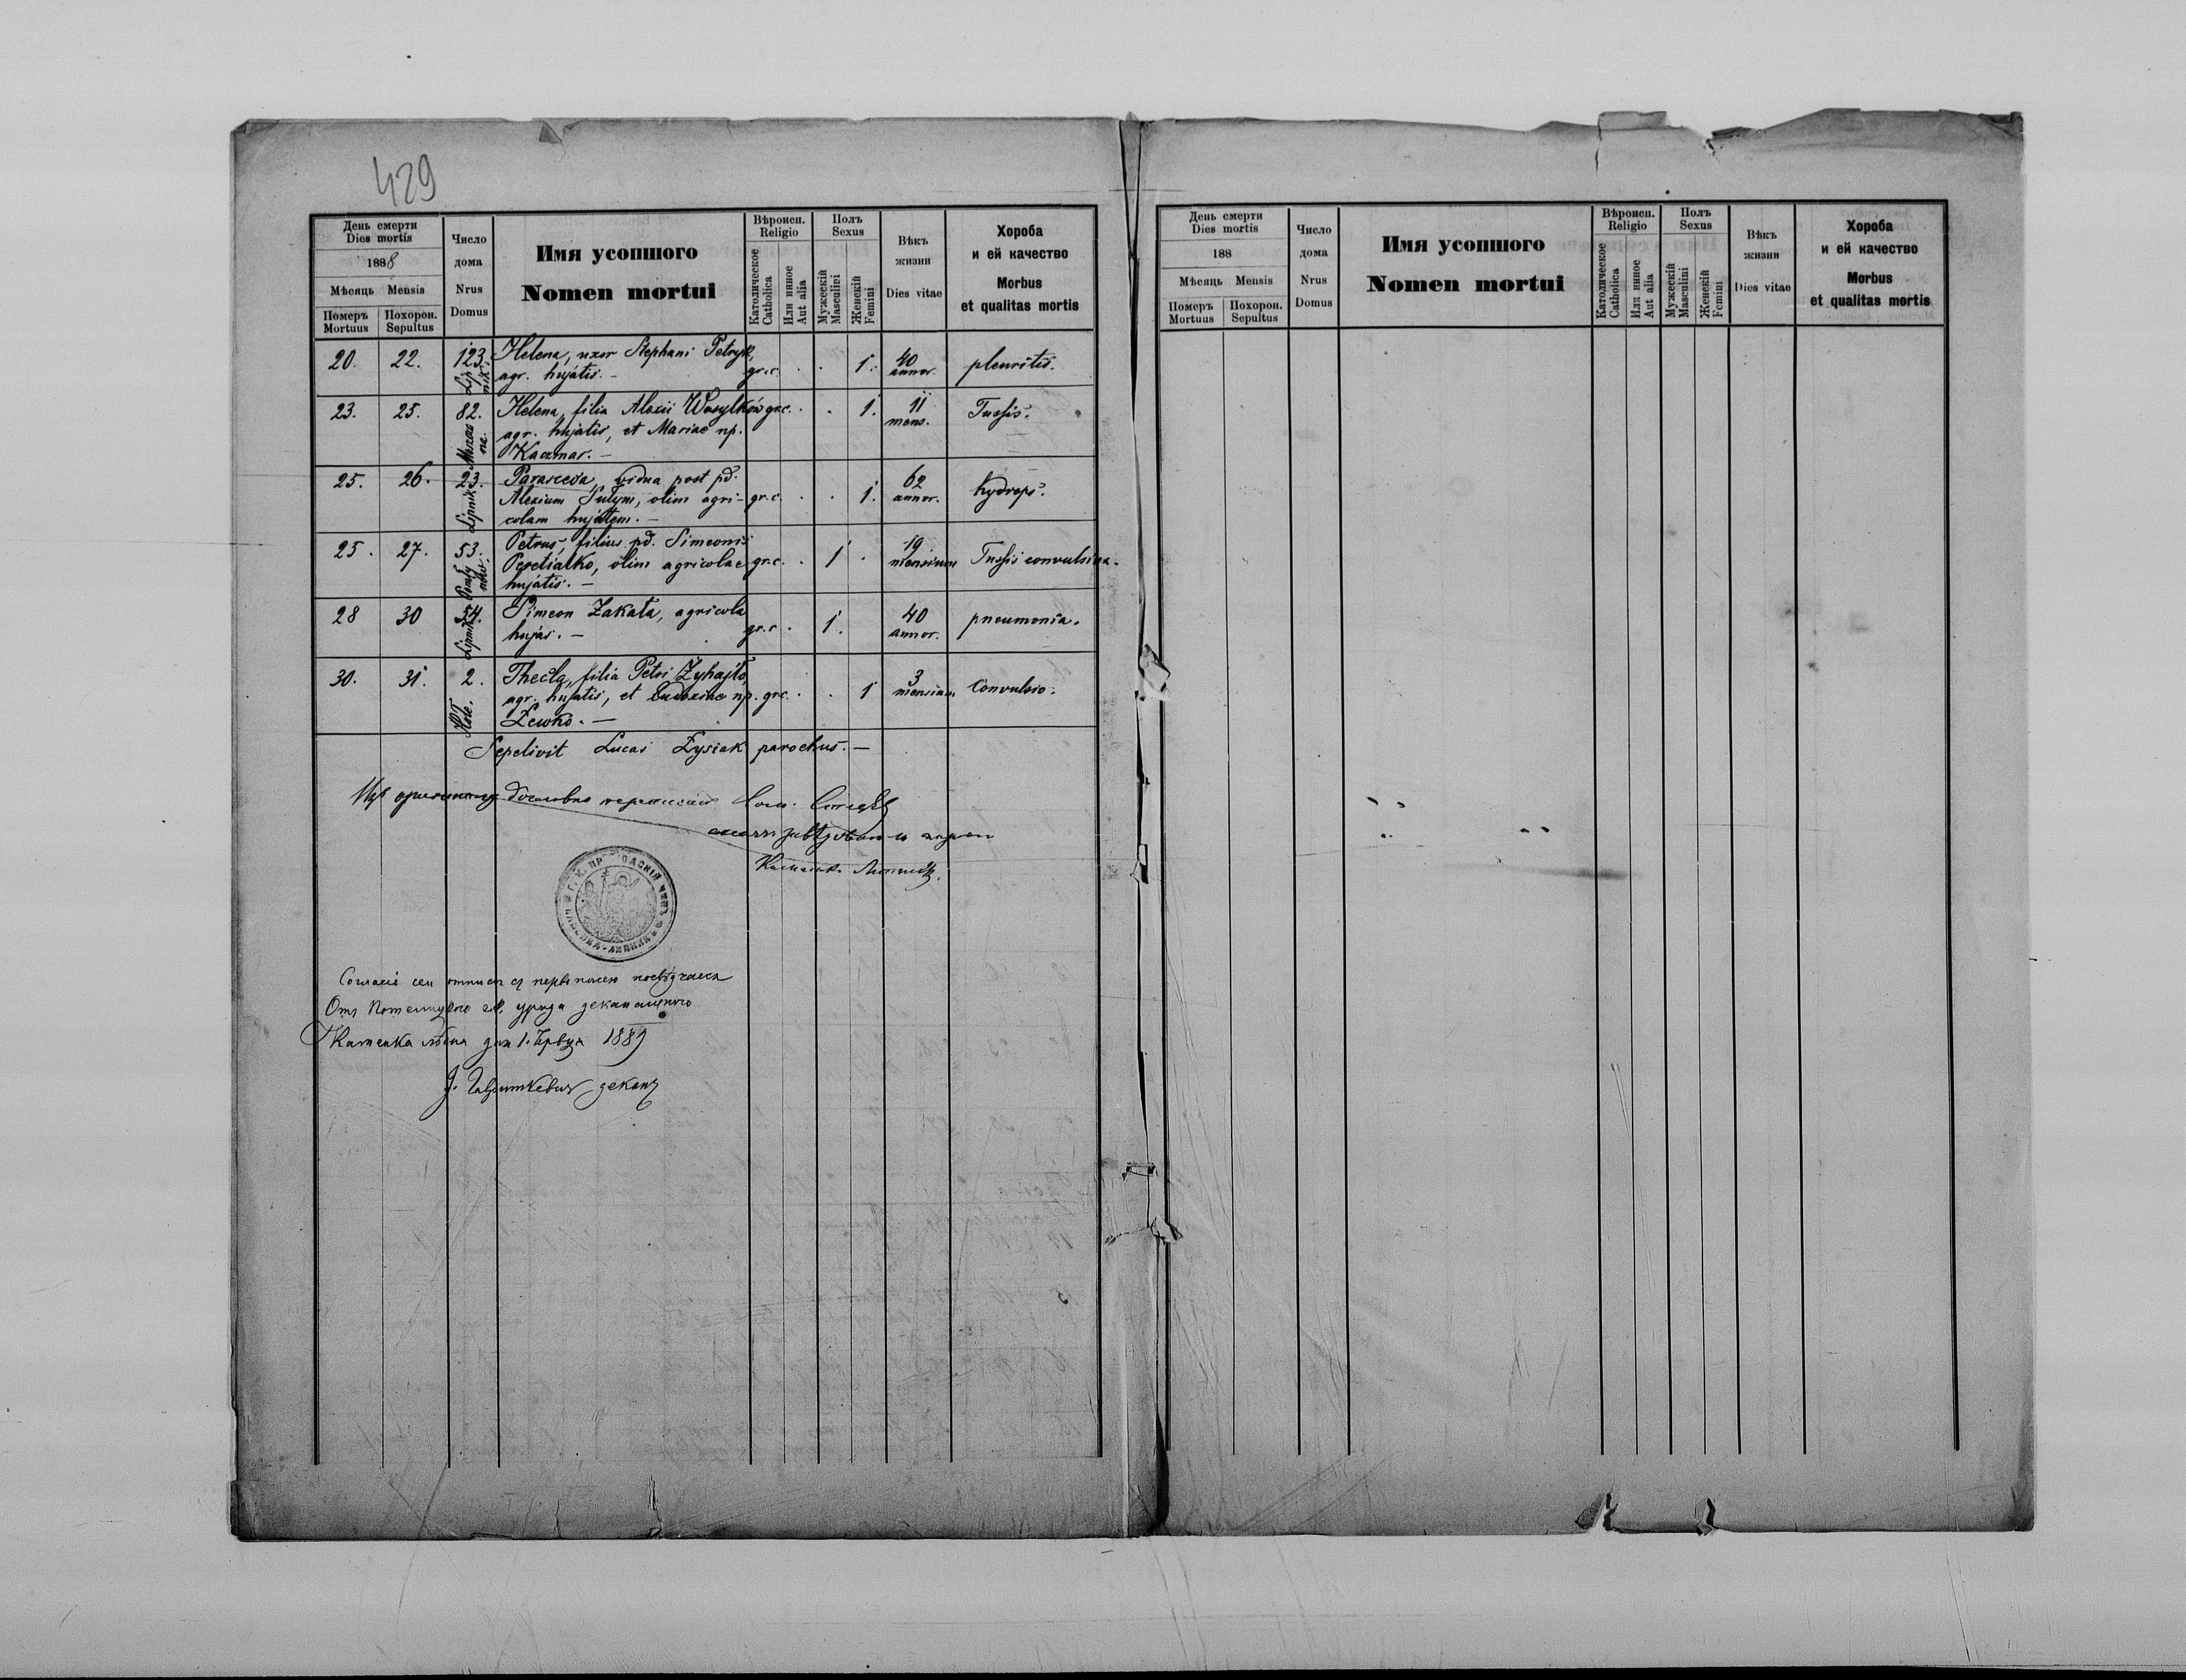 429
День смерти
Dies mortis
1888
Мѣсяць Mensis
Померъ Mortuus
Похорон. Sepultus
Число дома
Nrus Domus
Имя усопшого
Nomen mortui
Вѣроисп.
Religio
Католическое
Catholica
Или инное
Aut alia
Полъ
Sexus
Мужескій
Masculini
Женскій
Femini
Вѣкъ жизни
Dies vitae
Хороба
и ей качество
Morbus
et qualitas mortis
20. 22. 123. Helena, uxor Stephani Petryk,
Lipnik. agr. hujatis. – gr.c. 1. 40 annor. pleuritis.
23. 25. 82. Helena, filia Alexii Wasylków gr.c. 1. 11 mens. Tussis.
agr. hujatis, et Mariae np.
Kaczmar. –
25. 26. 23. Parasceva, vidua post pd.
Lipnik Alexium Sulym, olim agri- gr.c. 1. 62 annor. hydrops.
colam hujatem. –
25. 27. 53. Petrus, filius pd. Simeonis
olim agricolae gr.c. 1 19 mensium Tussis convulsiva.
hujatis. –
28 30 54. Simeon Zakała, agricola
Lipnik hujas. – gr.c. 1. 40 annor. pneumonia.
30. 31. 2. Thecla, filia Petri Żyhajło,
agr. hujatis, et Eudoxiae np. gr.c. 1 3 mensium Convulsio.
Hole. Lewko. –
Sepelivit Lucas Zysiak parochus. –
дословно
Липник.
Согласіе сеи отписи съ первописею
От
Каменка дня 1. 1889
деканъ
День смерти
Dies mortis
188
Мѣсяць Mensis
Померъ Mortuus
Похорон. Sepultus
Число дома
Nrus Domus
Имя усопшого
Nomen mortui
Вѣроисп.
Religio
Католическое
Catholica
Или инное
Aut alia
Полъ
Sexus
Мужескій
Masculini
Женскій
Femini
Вѣкъ жизни
Dies vitae
Хороба
и ей качество
Morbus
et qualitas mortis